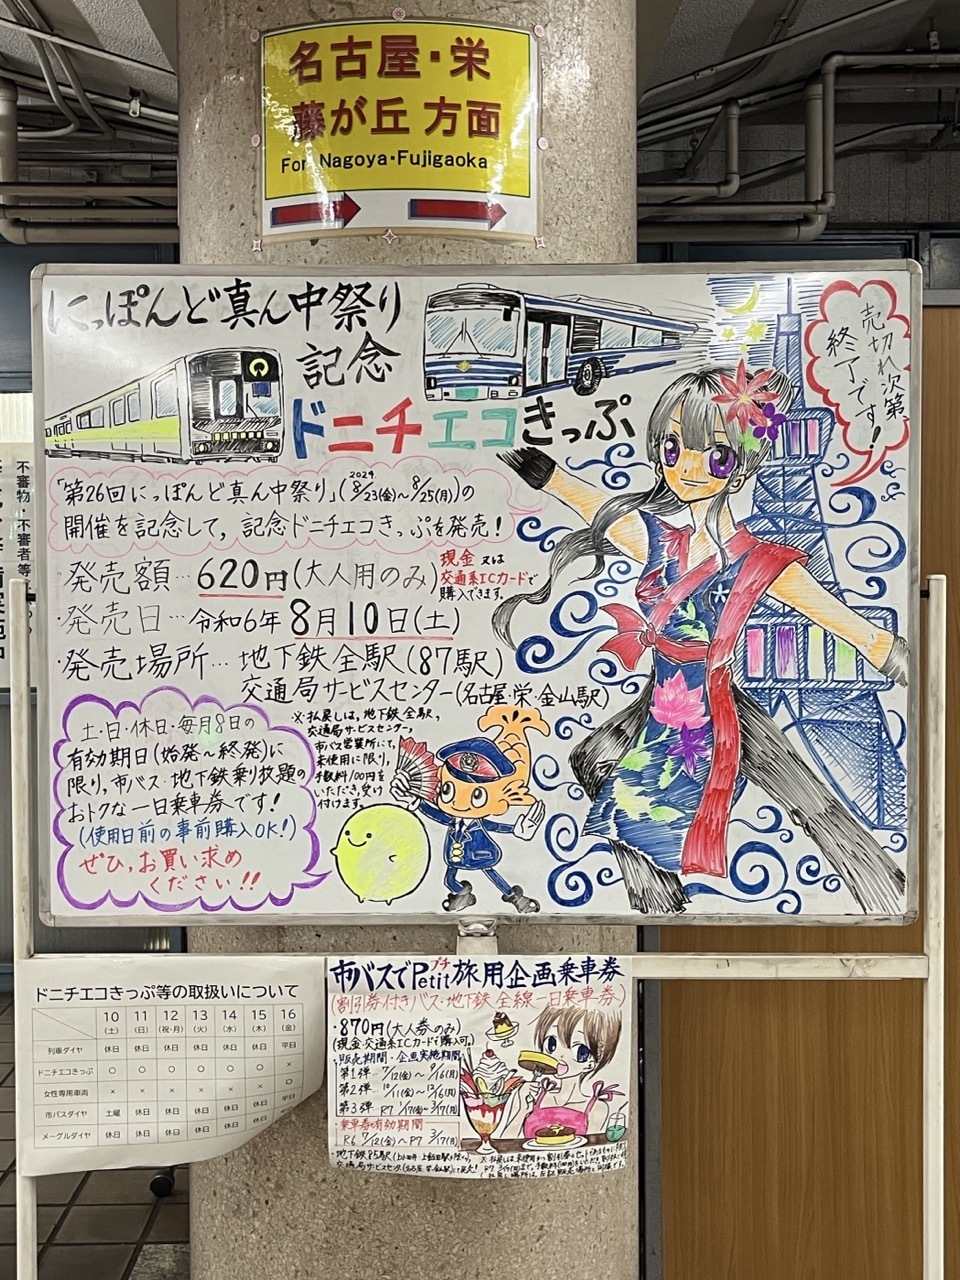 名古屋・栄
藤が丘 方面
For Nagoya・Fujigaoka
にっぽんど真ん中祭り
記念
ドニチエコきっぷ
売切れ次第
終了です!
「第26回にっぽんど真ん中祭り」(2024 8/23(金)~8/25(月))の
開催を記念して,記念ドニチエコきっぷを発売!
・発売額…620円(大人用のみ)
現金又は
交通系ICカードで
購入できます。
・発売日…令和6年8月10日(土)
・発売場所…地下鉄全駅(87駅)
交通局サービスセンター(名古屋・栄・金山駅)
※払戻しは,地下鉄全駅,
交通局サービスセンター,
市バス営業所にて,
未使用に限り,
手数料100円を
いただき,受け
付けます。
土・日・休日・毎月8日の
有効期日(始発~終発)に
限り,市バス・地下鉄乗り放題の
おトクな一日乗車券です!
(使用日前の事前購入OK!)
ぜひ,お買い求め
ください!!
不審物・不審者等
ドニチエコきっぷ等の取扱いについて
10 11 12 13 14 15 16
(土) (日) (祝・月) (火) (水) (木) (金)
列車ダイヤ 休日 休日 休日 休日 休日 休日 平日
ドニチエコきっぷ ○ ○ ○ ○ ○ ○ ×
女性専用車両 × × × × × × ○
市バスダイヤ 土曜 休日 休日 休日 休日 休日 平日
メーグルダイヤ 休日 休日 休日 休日 休日 休日
市バスでPetit旅用企画乗車券
プチ
(割引券付きバス・地下鉄全線一日乗車券)
・870円(大人券のみ)
(現金・交通系ICカードで購入可。)
・販売期間・企画実施期間
第1弾…7/12(金)~9/16(月)
第2弾…10/11(金)~12/16(月)
第3弾…R7 1/17(金)~3/17(月)
・乗車券有効期間
R6 7/12(金)~R7 3/17(月)
・地下鉄85駅(上小田井・上飯田駅を除く),
交通局サービスセンター(名古屋・栄・金山駅)にて発売!